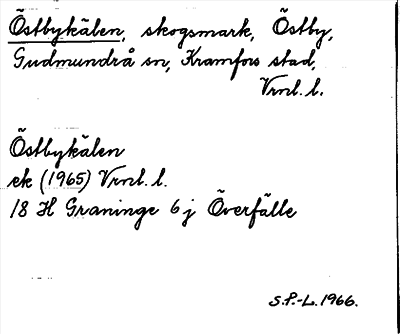 Östbykälen, skogsmark, Östby,
Gudmundrå sn, Kramfors stad,
Vrnl. l.
Östbykälen
ek (1965) Vrnl. l.
18 H Graninge 6 j Överfälle
S.P.-L. 1966.